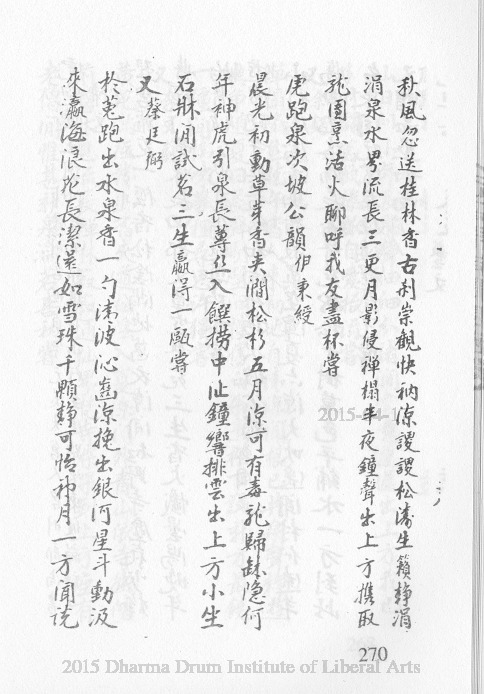 秋風忽送桂林香古刹崇觀快衲涼謖謖松濤生籟靜涓
涓泉水界流長三更月影侵禪榻半夜鐘聲出上方携取
龍團烹活火聊呼我友盡杯嘗
虎跑泉次坡公韻 伊秉綬
晨光初動草芽香夾澗松杉五月涼可有毒龍歸缽隱何
年神虎引泉長蓴絲入饌撈中沚鐘響排雲出上方小坐
石牀閒試茗三生贏得一甌嘗
又 蔡廷弼
於菟跑出水泉香一勺清波沁齒涼挽出銀河星斗動汲
來瀛海浪花長潔還如雪珠千顆靜可怡神月一方聞說
270
2015-4-1
2015 Dharma Drum Institute of Liberal Arts